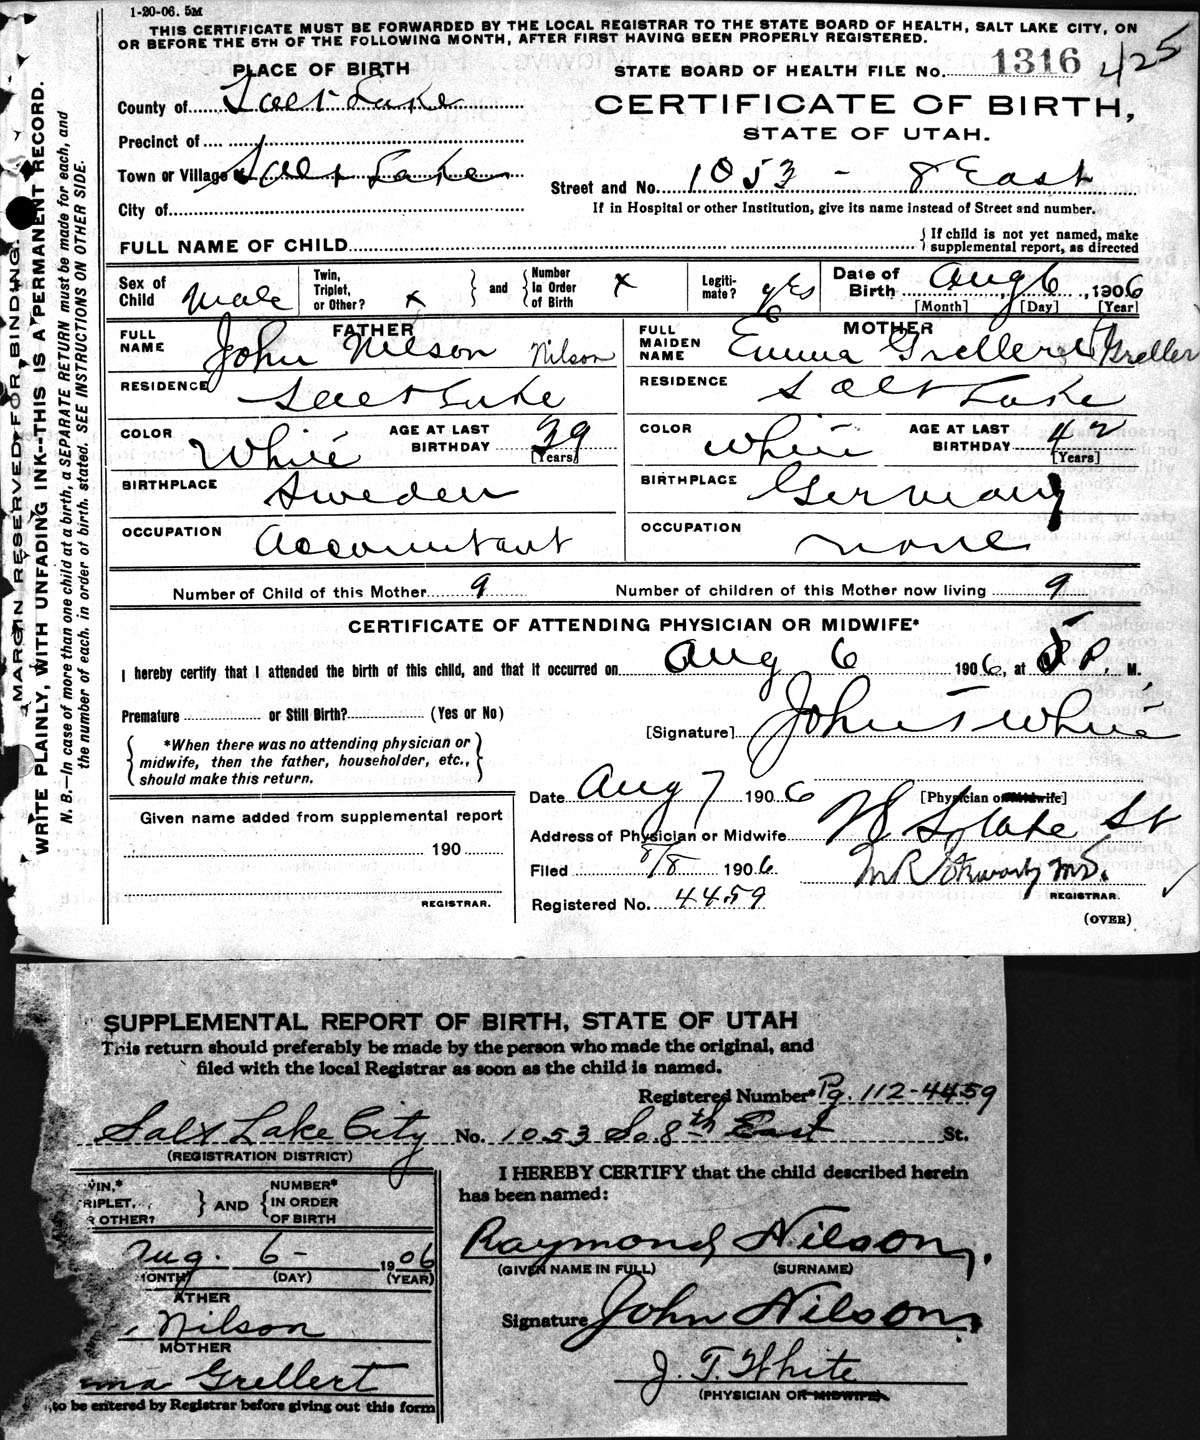 1-20-06. 5M
THIS CERTIFICATE MUST BE FORWARDED BY THE LOCAL REGISTRAR TO THE STATE BOARD OF HEALTH, SALT LAKE CITY, ON
OR BEFORE THE 5TH OF THE FOLLOWING MONTH, AFTER FIRST HAVING BEEN PROPERLY REGISTERED.
PLACE OF BIRTH
STATE BOARD OF HEALTH FILE No. 1316 425
County of Salt Lake
CERTIFICATE OF BIRTH,
STATE OF UTAH.
Precinct of
Town or Village Salt Lake
Street and No. 1053 - 8 East
City of
If in Hospital or other Institution, give its name instead of Street and number.
FULL NAME OF CHILD { If child is not yet named, make
supplemental report, as directed
Sex of Child Male Twin, Triplet, or Other? x } and { Number In Order of Birth x Legiti-mate? yes Date of Birth Aug 6, 1906
[Month] [Day] [Year]
FATHER
FULL NAME John Nelson Nilson
MOTHER
FULL MAIDEN NAME Emma Grellert Greller
RESIDENCE Salt Lake
RESIDENCE Salt Lake
COLOR White AGE AT LAST BIRTHDAY 39 [Years]
COLOR White AGE AT LAST BIRTHDAY 42 [Years]
BIRTHPLACE Sweden
BIRTHPLACE Germany
OCCUPATION Accountant
OCCUPATION none
Number of Child of this Mother 9 Number of children of this Mother now living 9
CERTIFICATE OF ATTENDING PHYSICIAN OR MIDWIFE*
I hereby certify that I attended the birth of this child, and that it occurred on Aug 6 1906, at 5 P. M.
Premature or Still Birth? (Yes or No)
[Signature] John T White
{ *When there was no attending physician or
midwife, then the father, householder, etc.,
should make this return. }
Date Aug 7 1906 [Physician or Midwife]
Given name added from supplemental report
190
REGISTRAR.
Address of Physician or Midwife State St
Filed 8/8 1906 M R Stewart, M.D.
REGISTRAR.
Registered No. 4459
(OVER)
MARGIN RESERVED FOR BINDING.
WRITE PLAINLY, WITH UNFADING INK--THIS IS A PERMANENT RECORD.
N. B.—In case of more than one child at a birth, a SEPARATE RETURN must be made for each, and
the number of each, in order of birth, stated. SEE INSTRUCTIONS ON OTHER SIDE.
SUPPLEMENTAL REPORT OF BIRTH, STATE OF UTAH
This return should preferably be made by the person who made the original, and
filed with the local Registrar as soon as the child is named.
Registered Number* Pg. 112-4459
Salt Lake City No. 1053 So. 8th East St.
(REGISTRATION DISTRICT)
VIN,*
RIPLET,
OTHER? } AND { NUMBER*
IN ORDER
OF BIRTH
Aug. 6- 1906
ONTH) (DAY) (YEAR)
ATHER
Nilson
MOTHER
ma Grellert
to be entered by Registrar before giving out this form
I HEREBY CERTIFY that the child described herein
has been named:
Raymond Nilson.
(GIVEN NAME IN FULL) (SURNAME)
Signature John Nilson.
J. T. White
(PHYSICIAN OR MIDWIFE)